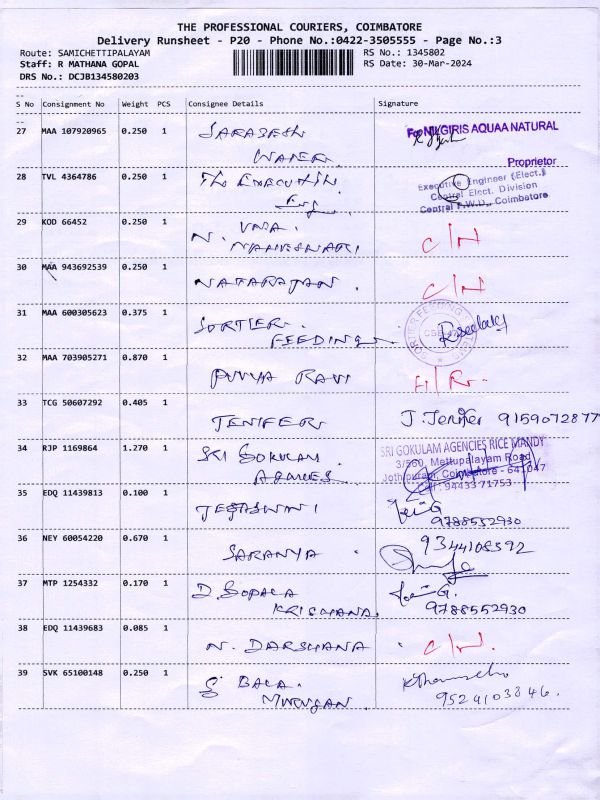 THE PROFESSIONAL COURIERS, COIMBATORE
Delivery Runsheet - P20 - Phone No.:0422-3505555 - Page No.:3
Route: SAMICHETTIPALAYAM
RS No.: 1345802
Staff: R MATHANA GOPAL
RS Date: 30-Mar-2024
DRS No.: DCJB134580203
S No Consignment No Weight PCS Consignee Details Signature
27 MAA 107920965 0.250 1
For NILGIRIS AQUAA NATURAL
Proprietor
28 TVL 4364786 0.250 1 The
Executive Engineer (Elect.)
Central Elect. Division
Central P.W.D., Coimbatore
29 KOD 66452 0.250 1 N. UMA. C/N
MAHESWARI
30 MAA 943692539 0.250 1 NATARAJAN. C/N
31 MAA 600305623 0.375 1
FEEDING
32 MAA 703905271 0.870 1 PUVYA RAVI
33 TCG 50607292 0.405 1 JENIFER J. Jenifer 9159072877
34 RJP 1169864 1.270 1 SRI GOKULAM.
SRI GOKULAM AGENCIES RICE MANDY
3/560, Mettupalayam Road
Jothipuram, Coimbatore - 641 047
Cell : 94433 71753
35 EDQ 11439813 0.100 1 TEJASWINI
9788552930
36 NEY 60054220 0.670 1 SARANYA 9344108392
37 MTP 1254332 0.170 1 D. GOPALA
KRISHANA. 9788552930
38 EDQ 11439683 0.085 1 N. DARSHANA C/N.
39 SVK 65100148 0.250 1 BALA.
MURUGAN 9524103846.